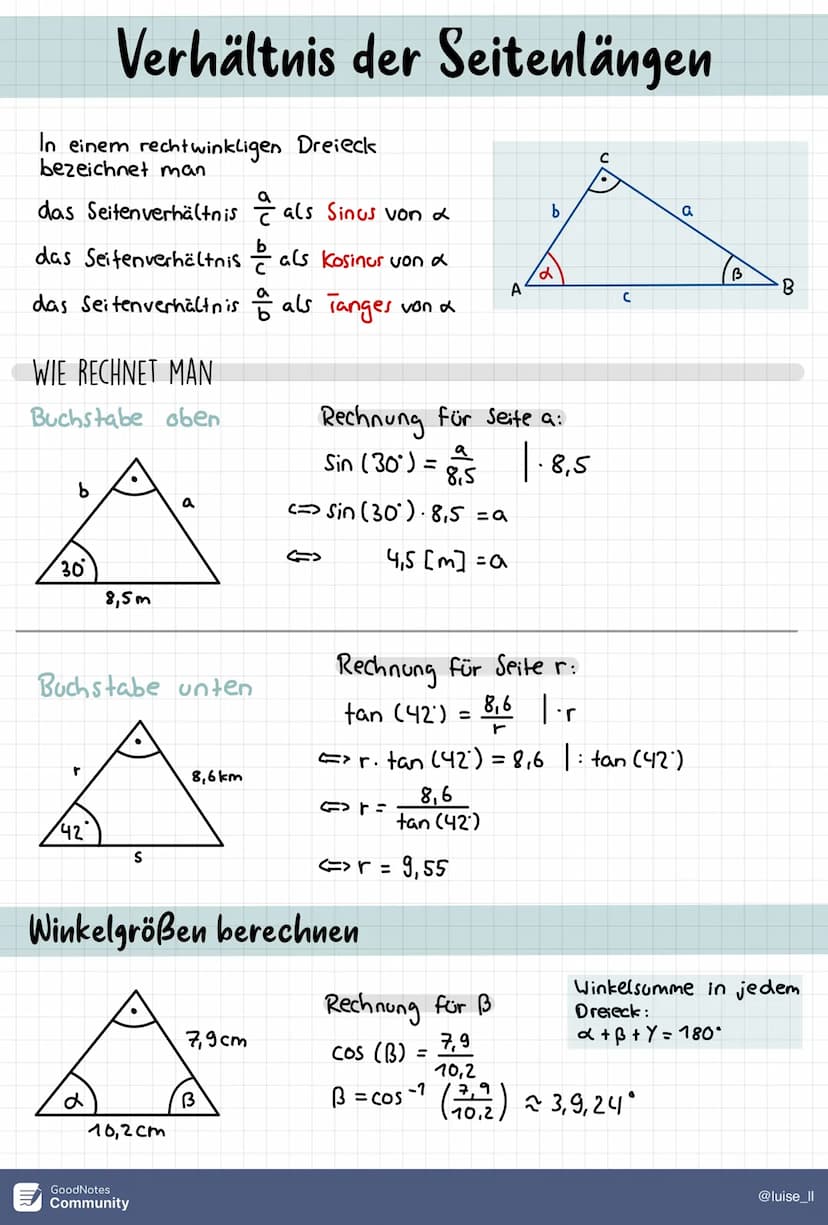 Verhältnis der Seitenlängen
In einem rechtwinkligen Dreieck
bezeichnet man
das Seitenverhältnis a/c als Sinus von α
das Seitenverhältnis b/c als Kosinus von α
das Seitenverhältnis a/b als Tanges von α
C
b
a
A
α
β
B
c
WIE RECHNET MAN
Buchstabe oben
b
a
30°
8,5m
Rechnung für Seite a:
sin (30°) = a/8,5 | · 8,5
<=> sin(30°) · 8,5 = a
<=> 4,5 [m] = a
Buchstabe unten
r
8,6km
42°
s
Rechnung für Seite r:
tan (42°) = 8,6/r | · r
<=> r · tan (42°) = 8,6 | : tan (42°)
<=> r = 8,6/tan (42°)
<=> r = 9,55
Winkelgrößen berechnen
7,9cm
α
β
10,2cm
Rechnung für β
cos (β) = 7,9/10,2
β = cos⁻¹ (7,9/10,2) ≈ 3,9,24°
Winkelsumme in jedem
Dreieck:
α + β + γ = 180°
GoodNotes
Community
@luise_ll